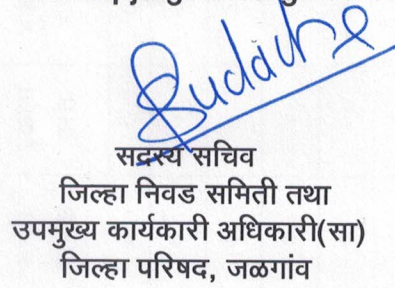 सदस्य सचिव
जिल्हा निवड समिती तथा
उपमुख्य कार्यकारी अधिकारी(सा)
जिल्हा परिषद, जळगांव